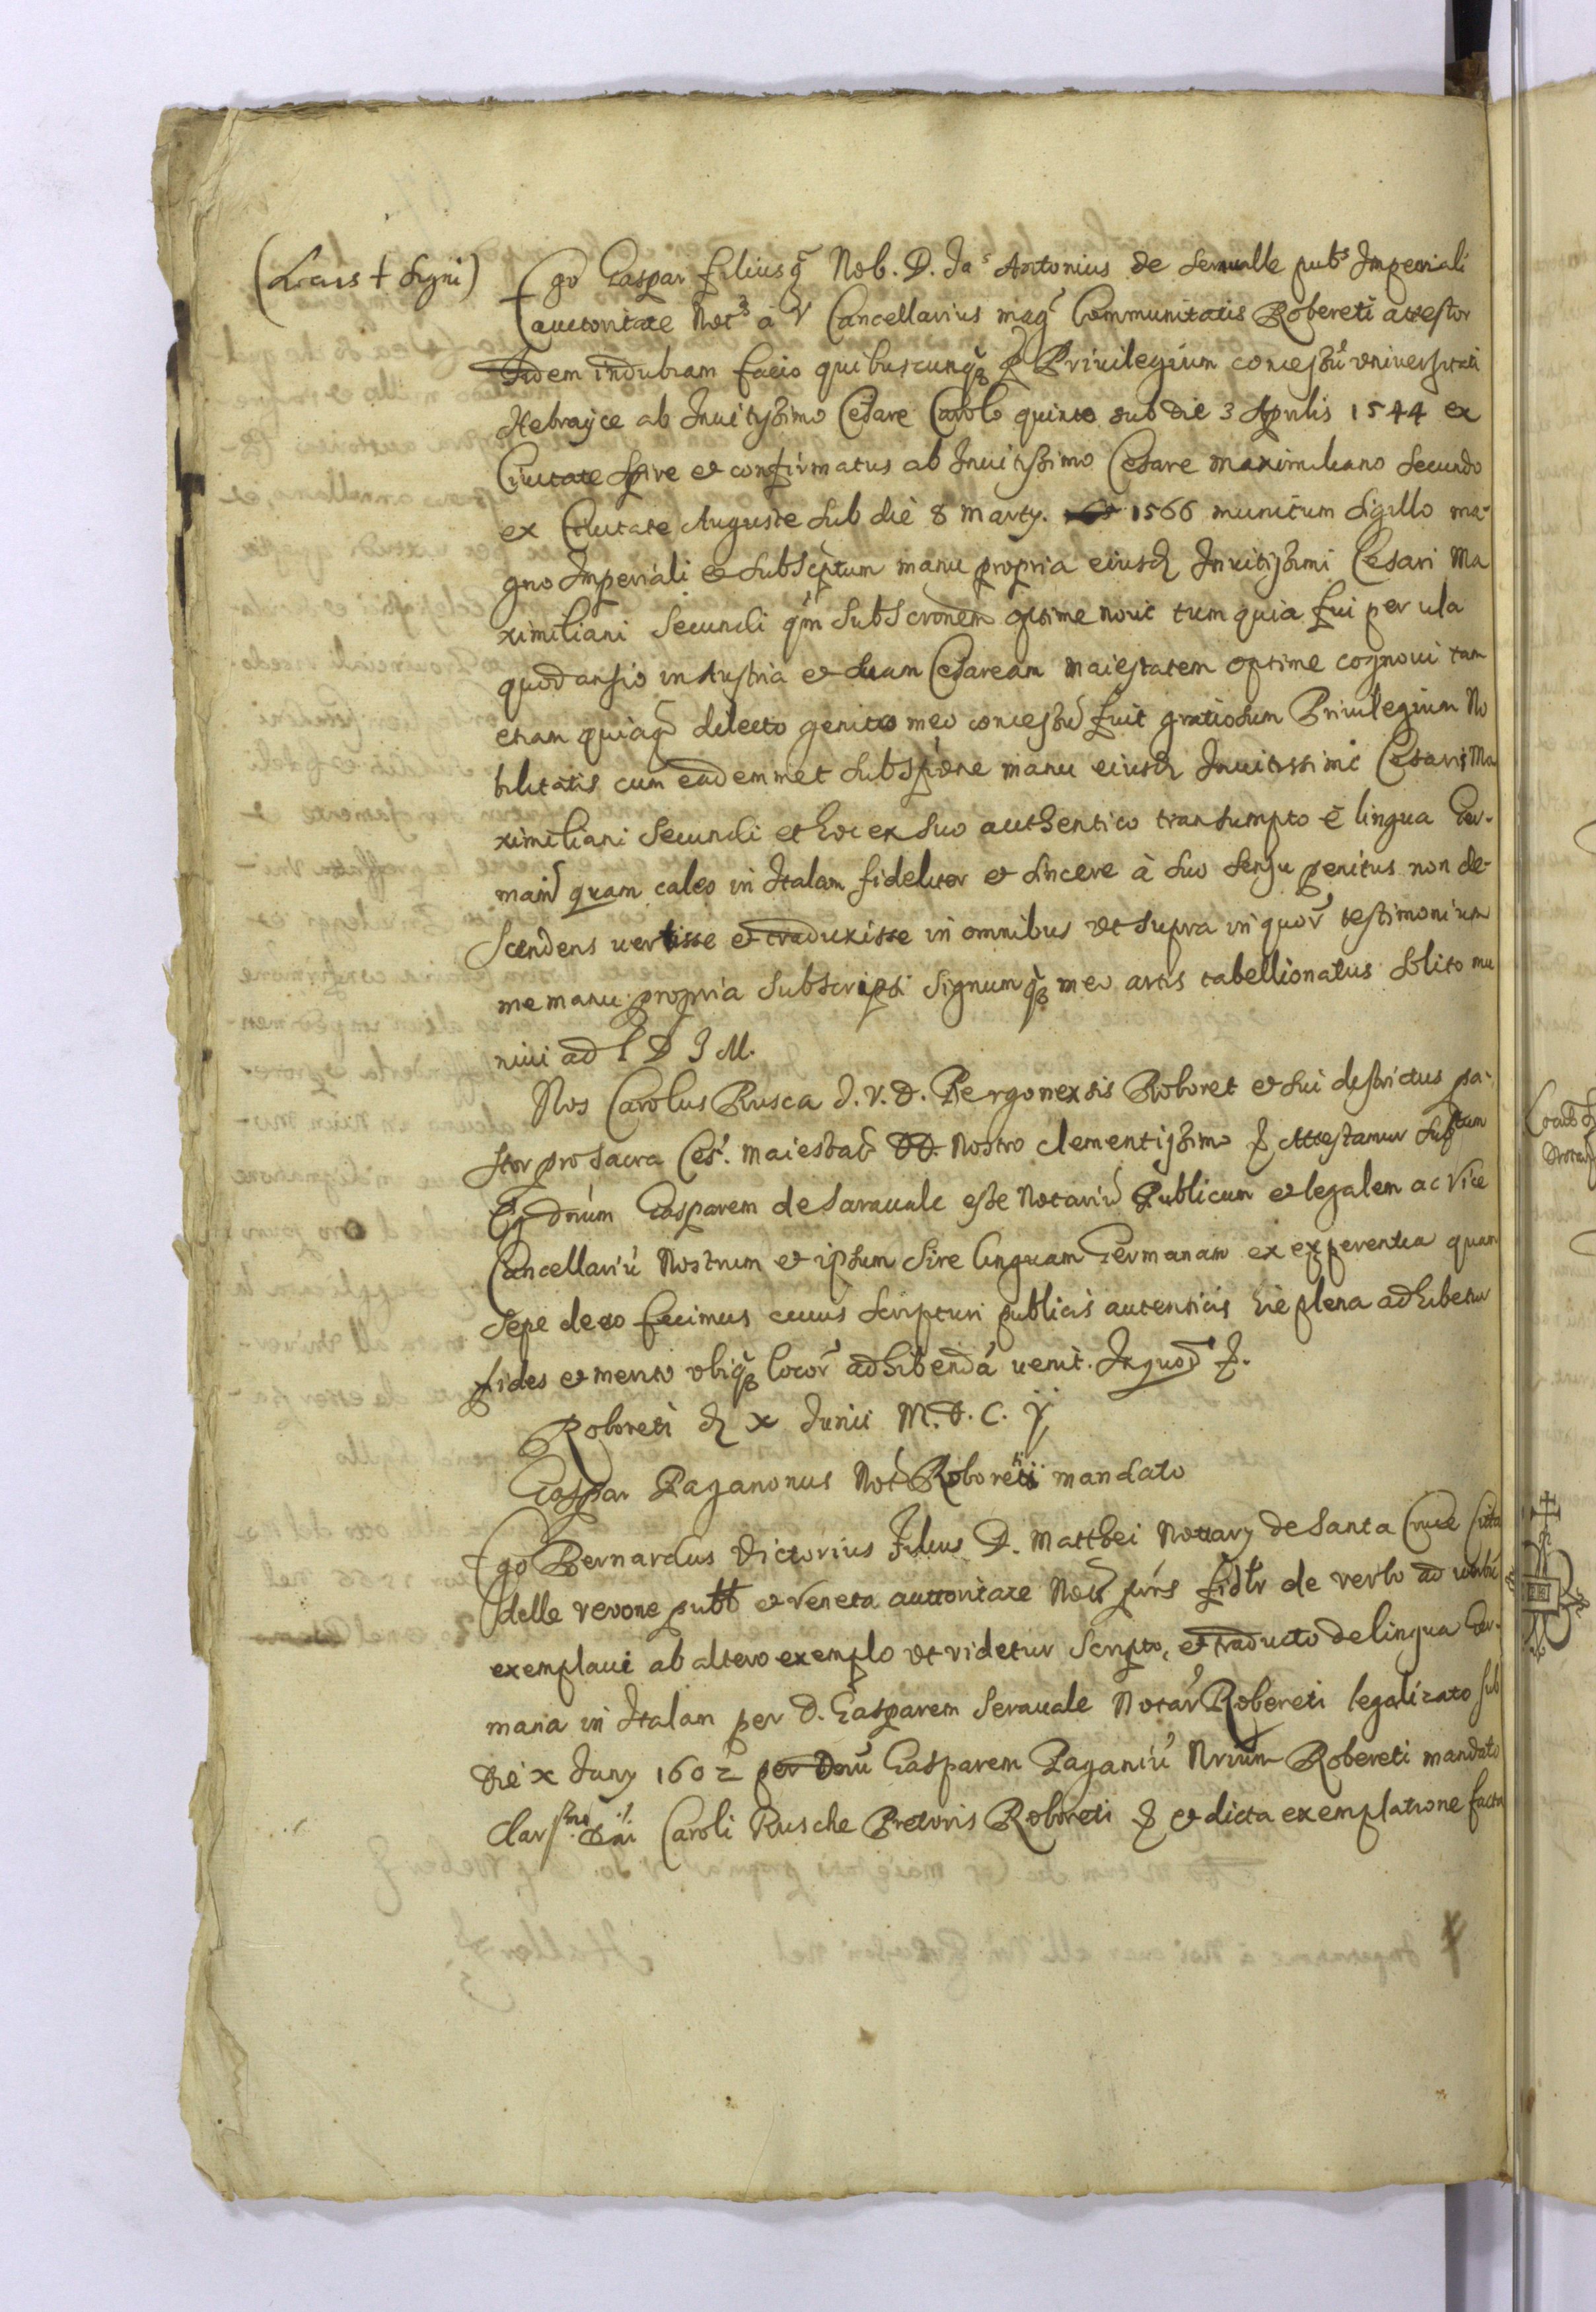 (Locus + Signi) Ego Gaspar filius q. Nob. D. Jas Antonius de Serualle pubs Imperiali
auctoritate Nots a V Cancellarius mag. Communitatis Robereti attestor
fidem indubiam facio quibuscunq. Priuilegium concessũ vniuersitati
Hebrayce ab Inuitissimo Cesare Carolo quinto sub die 3 Aprilis 1544 ex
Ciuitate Spire et confirmatus ab Inuitissimo Cesare Maximiliano Secundo
ex Ciuitate Auguste sub die 8 Marty. 1566 munitum Sigillo ma-
gno Imperiali et subscptum manu propria eiusd Inuitissimi Cesari Ma
ximiliani Secundi qm subscronem optime novit tum quia fui per ula
quod ansio in Austria et suam Cesaream Maiestatem optime cognoui tam
etiam quia delecto genito meo concessũ fuit gratiosum Priuilegium No
bilitatis cum eademmet subspione manu eiusd Inuitissimi Cesaris Ma
ximiliani Secundi et hoc ex suo authentico transumpto è lingua Ger-
mana quam caleo in Italam fideliter et sincere à suo sensu penitus non de-
scendens uertisse et traduxisse in omnibus vt supra in quor testimonium
me manu propria subscripsi signumq. meo artis tabellionatus solito mu
niui ad L D I M.
Nos Carolus Rusca J. V. D. Bergomensis Roboret et sui destrictus pa-
stor pro Sacra Ces. Maiestate DD. Nostro clementissimo Attestamur suptum
Eg dnum Gasparem de Sarauale esse Notariũ Publicum et legalem ac Vice
Cancellariũ Nostrum et ipsum Sire linguam Germanam ex experentia quam
sepe de eo fecimus cuius scripturi publicis autenticis hic plena adhibetur
fides et merito vbiq. locor adhibenda uenit. In quor
Roboreti d x Junii M. D. C. ij
Gaspar Paganonus Not Roboreti mandato
Ego Bernardus Victorius Filius D. Matthei Notary de Santa Cruce Citta
delle verone pub et Veneta auttoritate Not pñs fidlr de verbo ad verbũ
exemplaui ab altero exemplo vt videtur scripto, et traducto de lingua Ger-
mana in Italam per D. Gasparem Serauale Notar Robereti legalizato sub
die x Juny 1602 per Dnũ Gasparem Paganiũ Nrium Robereti mandato
Clarsmo Dni Caroli Rusche Pretoris Roboreti et dicta exemplatione facta